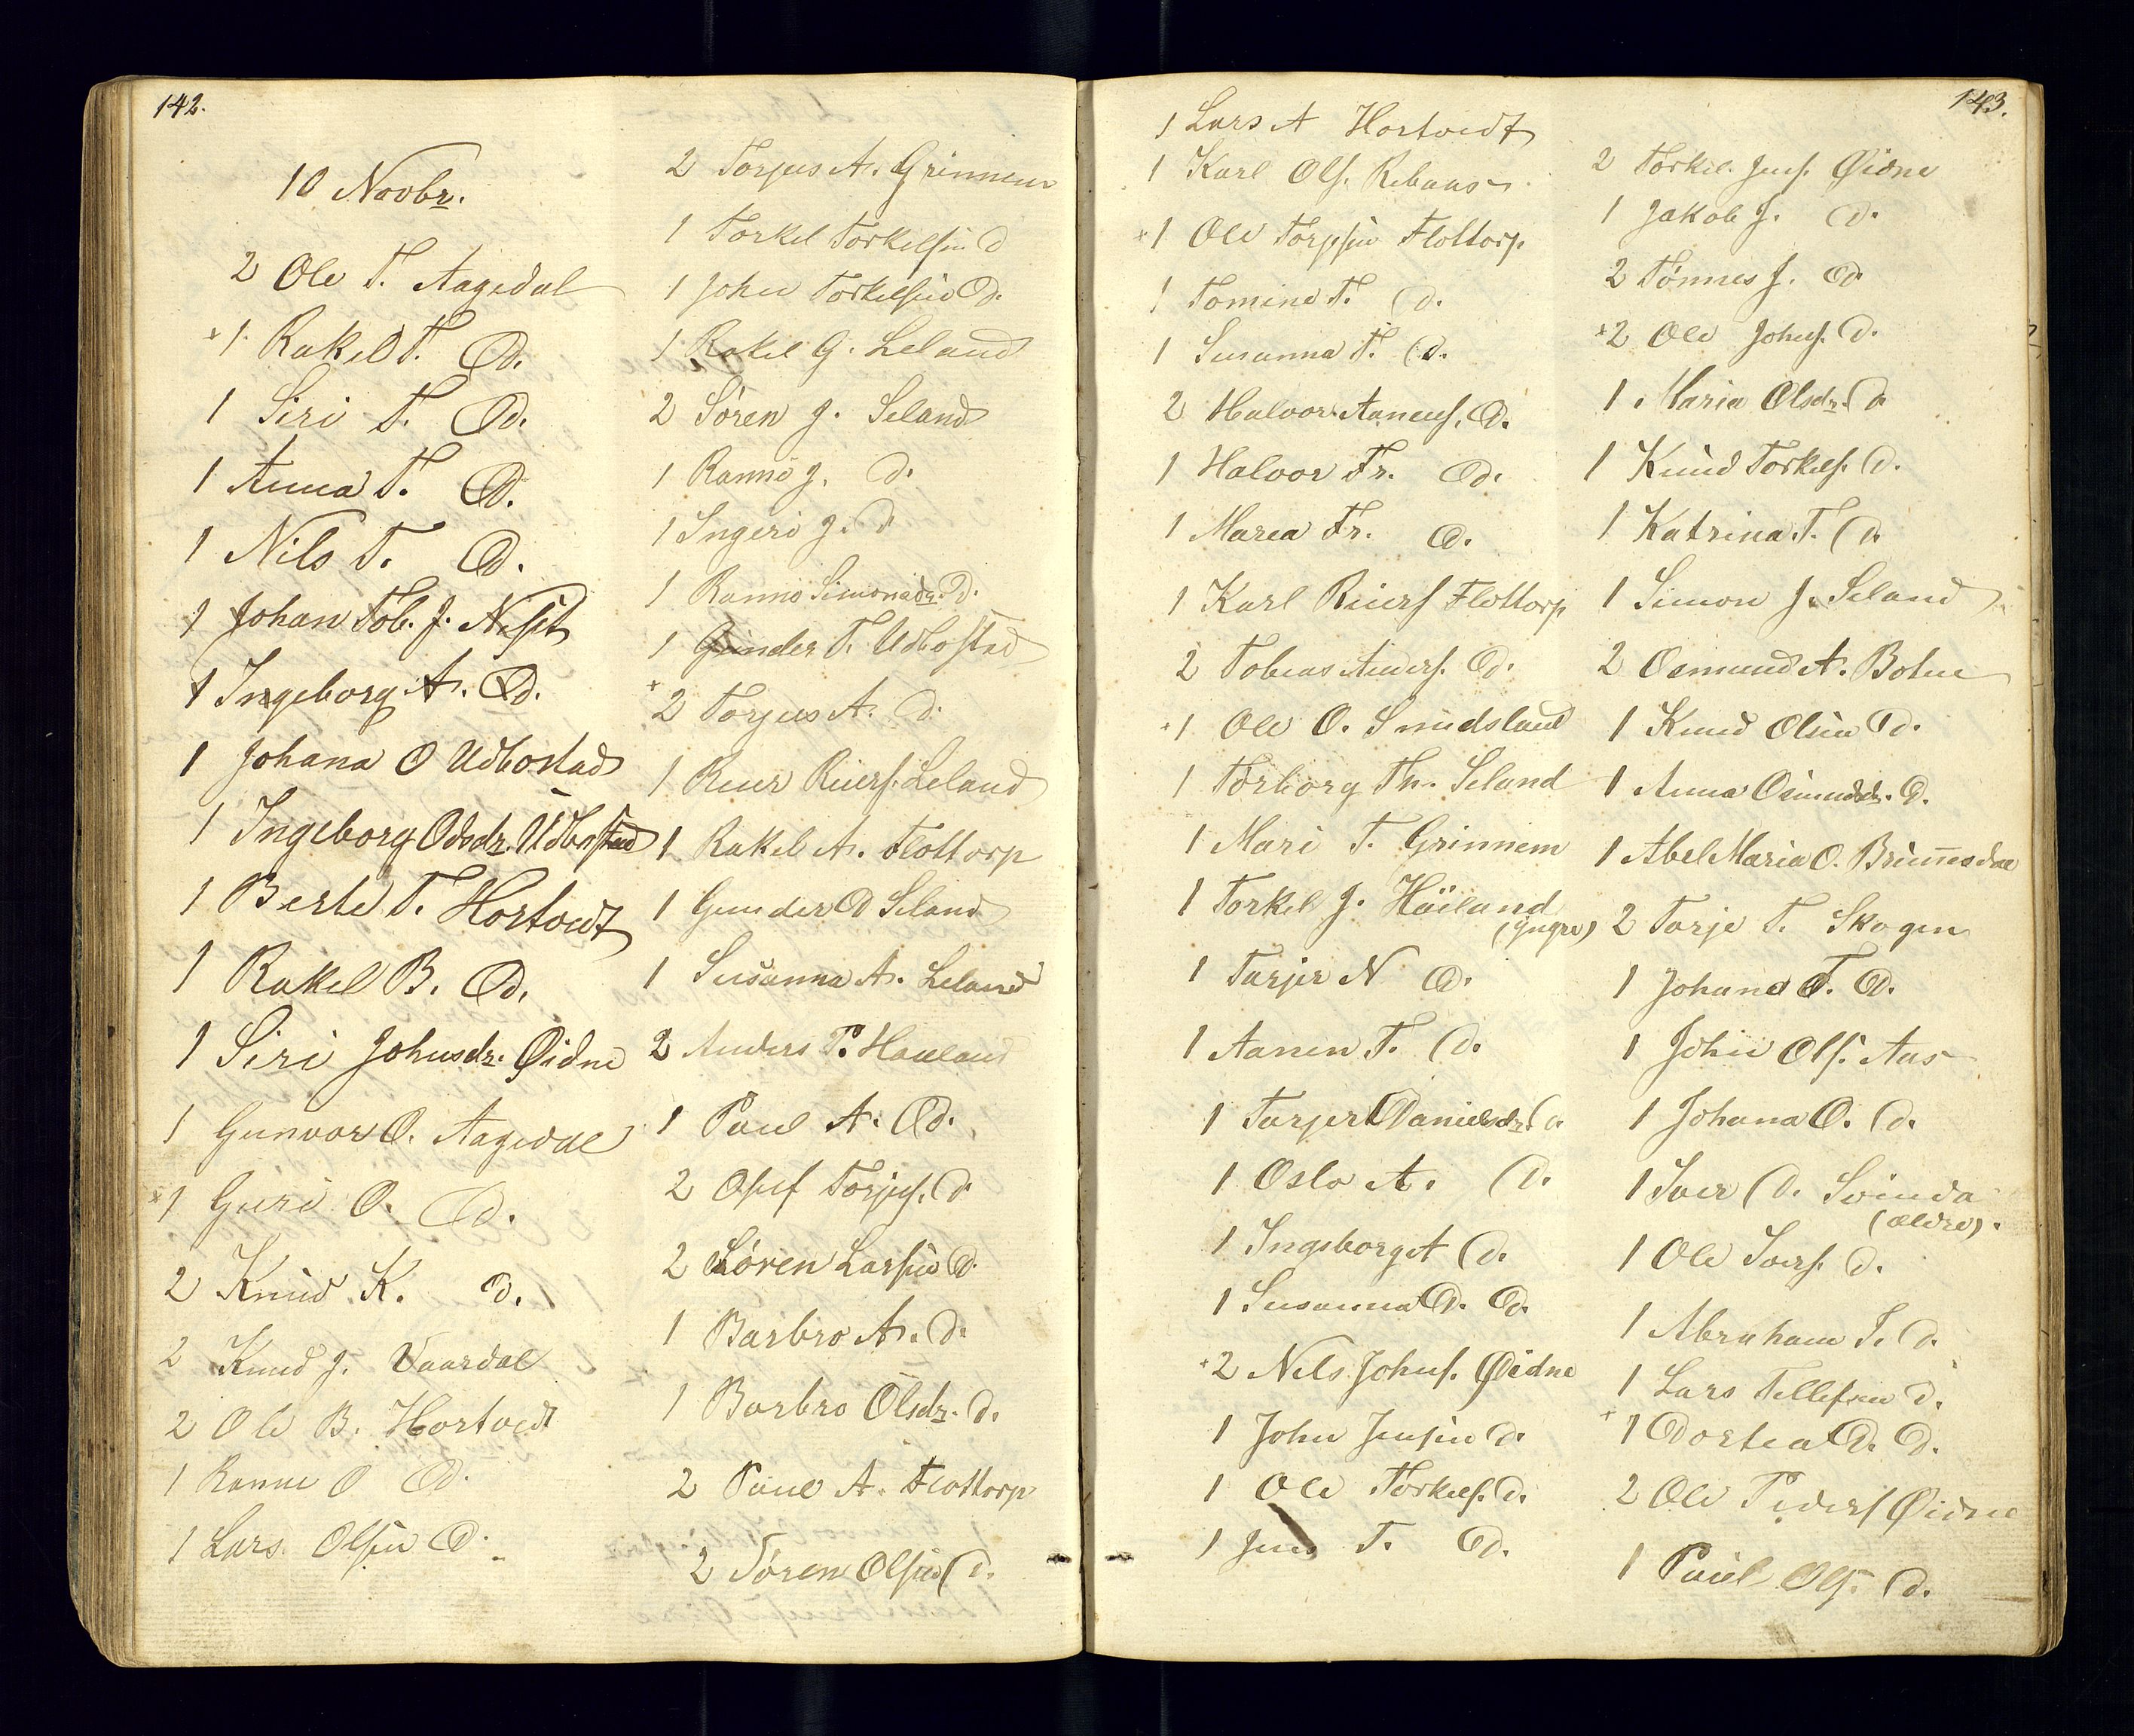 142.
10 Novbr.
2 Ole T. Aagedal
*1 Rakel T. Do.
1 Siri T. Do.
1 Anna T. Do.
1 Nils T. Do.
1 Johan Tob. J.
1 Ingeborg A. Do.
1 Johana O Udbostad
1 Ingeborg Odsdr. Udbostad
1 Berte T. Hortvedt
1 Rakel B. Do.
1 Siri Johnsdr. Øidne
1 Gunvor O. Aagedal
*1 Guri O. Do.
2 Knud K. Do.
2 Knud J. Vaardal
2 Ole B. Hortvedt
1 Ranne O Do.
1 Lars Olsen Do.
2 Torjus A. Grinnem
1 Torkel Torkelsen D
1 John Torkelsen Do.
1 Rakel G. Leland
2 Sören J. Seland
1 Ranno J. D.
1 Ingeri J. D.
1 Ranno Simonsdr. D.
1 Gunder T. Udbostad
*2 Torjus A. D.
1 Reier Reiers. Leland
1 Rakel A. Flottorp
1 Gunder D Seland
1 Susanna A. Leland
2 Anders P. Haaland
1 Paul A. Do.
2 Oluf Torjus. D.
2 Sören Larsen D.
1 Barbro A. D.
1 Barbro Olsdr. D.
2 Paul A. Flottorp
2 Sören Olsen D.
143.
1 Lars A Hortvedt
1 Karl Ols. Rebaas
*1 Ole Torjsen Flottorp
1 Tomine T. D.
1 Susanna T. D.
2 Halvor Aanens. D.
1 Halvor Fr. Do.
1 Marea Fr. D.
1 Karl Reiers Flottorp
2 Tobias Anders. D.
*1 Ole O. Smidsland
1 Torborg Th. Seland
1 Mari T. Grinnem
1 Torkel J. Höiland
(yngre)
1 Tarjer N D.
1 Aanen T. D.
1 Tarjer Danielsdr. D.
1 Oslo A. D.
1 Ingeborg A D.
1 Susanna D. D.
*2 Nels Johns. Øidne
1 John Jensen D.
1 Ole Torkels. D.
1 Jens T. D.
2 Torkel Jens. Øidne
1 Jakob J. D.
2 Tönnes J. D.
*2 Ole Johns. D.
1 Maria Olsdr. D.
1 Knud Torkels. D.
1 Katrina T. D.
1 Simon J. Seland
2 Osmund A. Bohne
1 Knud Olsen D.
1 Anna Osmundsdr. D.
1 Abel Maria O. Brinnesdal
2 Tarje T. Skogen
1 Johane T. D.
1 John Ols. Aas
1 Johana O. D.
1 Iver D. Svinda
(ældre).
1 Ole Ivers. D.
1 Abraham T. D.
1 Lars Tellefsen D.
*1 Dortea D. D.
2 Ole Peders Øidne
1 Paul Ols. D.